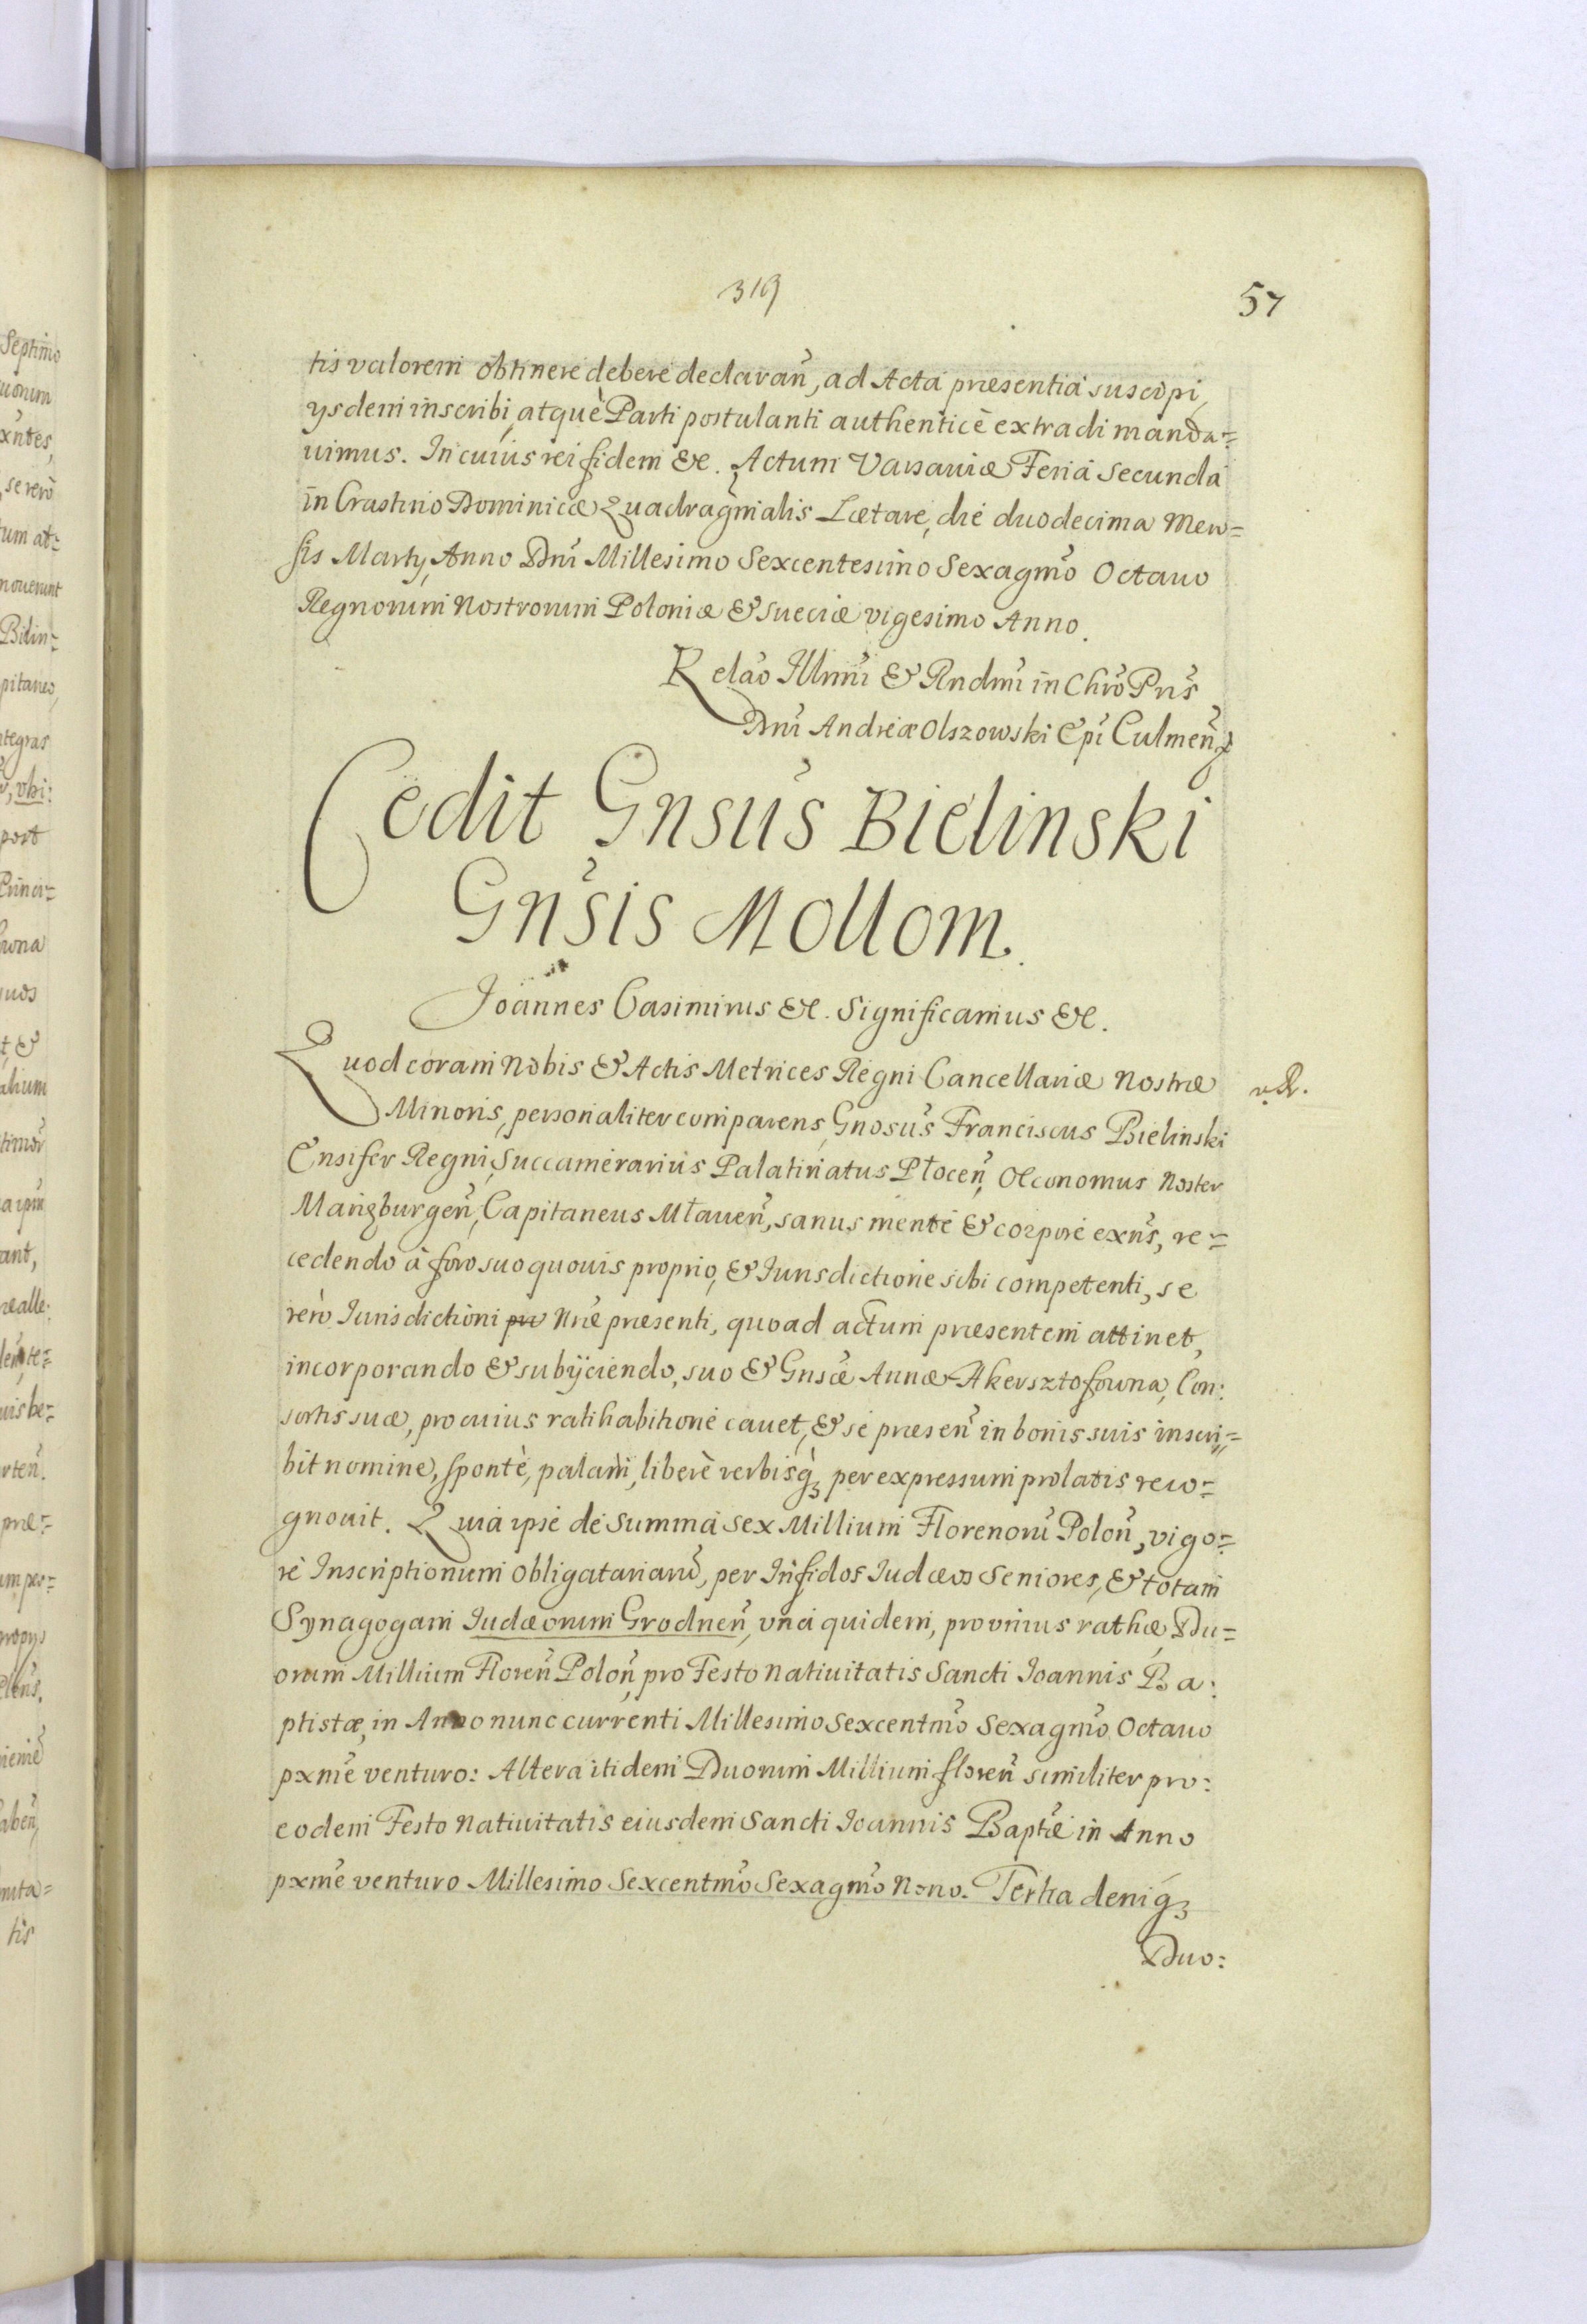 319
57
tis valorem obtinere debere declaran̄, ad Acta præsentia suscipi,
ysdem inscribi, atquè Parti postulanti authenticè extradi manda=
uimus. In cuius rei fidem &c. Actum Varsauiæ Feria Secunda
in Crastino Dominicæ Quadragn̄ialis Lætare, die duodecima Men=
sis Martÿ, Anno Dnī Millesimo Sexcentesimo Sexagm̄o Octauo
Regnorum Nostrorum Poloniæ & Sueciæ vigesimo Anno.
Relāo Illmī & Rndmī in Chrō Prīs
Dnī Andreæ Olszowski Epī Culmen̄
Cedit Gnsūs Bielinski
Gnsīs Mollom.
Joannes Casimirus &c. Significamus &c.
Quod coram Nobis & Actis Metrices Regni Cancellariæ Nostræ
v.R.
Minoris, personaliter comparens, Gnosūs Franciscus Bielinski
Ensifer Regni, Succamerarius Palatinatus Płocen̄, Oeconomus Noster
Margburgen̄, Capitaneus Mławen̄, sanus mente & corpore exn̄s, re=
cedendo à foro suo quouis proprio, & Iurisdictione sibi competenti, se
verò Iurisdictioni Nrāe præsenti, quoad actum præsentem attinet,
incorporando & subÿciendo, suo & Gnsāe Annæ Akersztofowna, Con:
sortis suæ, pro cuius ratihabitione cauet, & se præsen̄ in bonis suis inscri=
bit nomine, spontè, palam, liberè verbisq; per expressum prolatis reco=
gnouit. Quia ipse de Summa Sex Millium Florenorū Polon̄, vigo=
re Inscriptionum obligatariarū, per Infidos Iudæos Seniores, & totam
Synagogam Iudæorum Grodnen̄, vna quidem, pro vnius rathæ, Du=
orum Millium Floren̄ Polon̄, pro Festo Natiuitatis Sancti Ioannis Ba:
ptistæ, in Anno nunc currenti Millesimo Sexcentm̄o Sexagm̄o Octauo
pxm̄e venturo: Altera itidem Duorum Millium floren̄ similiter pro:
eodem Festo Natiuitatis eiusdem Sancti Ioannis Baptāe in Anno
pxm̄e venturo Millesimo Sexcentm̄o Sexagm̄o Nono. Tertia deniq;
Duo: